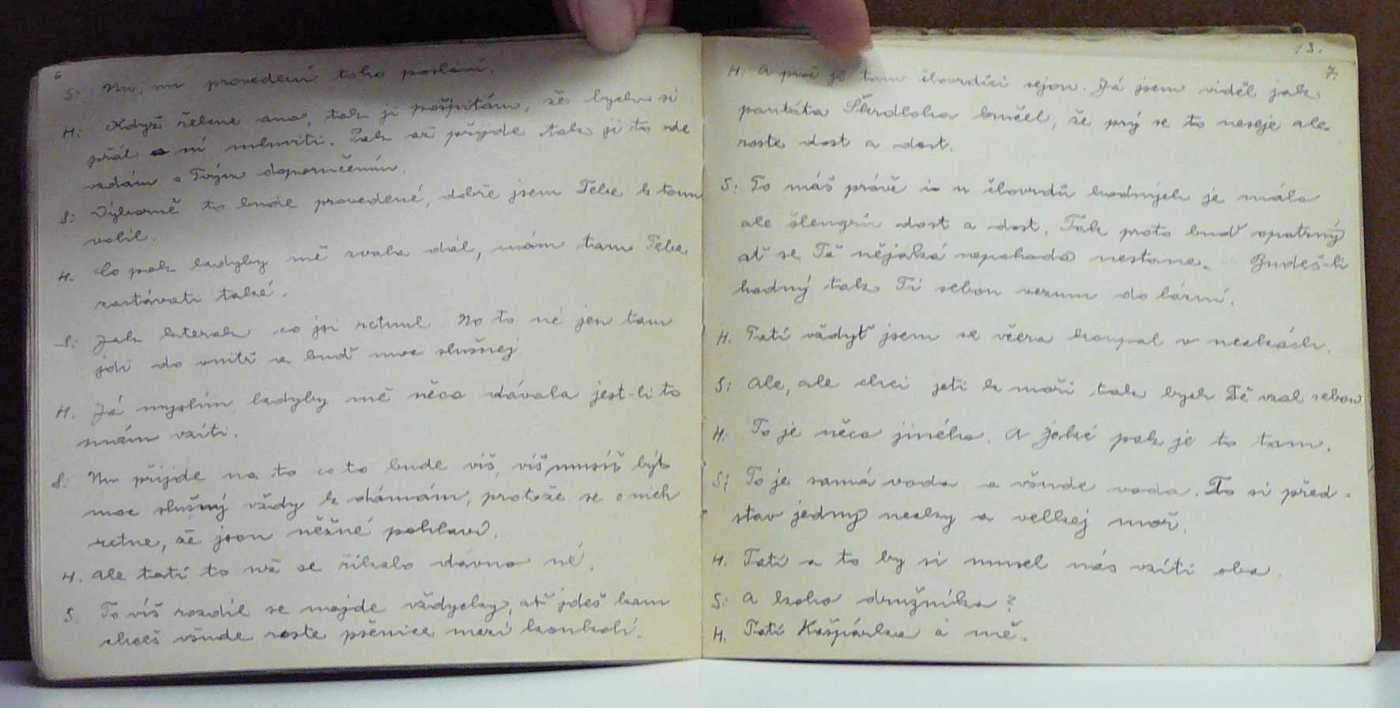 6
S: Nu, na provedení toho poslání.
H: Když řekne ano, tak ji pošeptám, že bych si
přál s ní mluviti. Pak až přijde tak ji to ode
vzdám s Tvým doporučením.
S: Výborně to bude provedené, dobře jsem Tebe k tomu
volil.
H. Co pak kdyby mě zvala dál, mám tam Tebe
zastávati také.
S: Jak kterak co jsi retnul No to né jen tam
jdi do vnitř a buď moc slušnej
H. Já myslím kdyby mě něco dávala jest-li to
smám vzíti.
S: Nu přijde na to co to bude víš, víš musíš být
moc slušný vždy k dámám, protože se o nich
retne, že jsou něžné pohlaví.
H. ale tatí to už se říkalo dávno né.
S. To víš rozdíl se najde vždycky, ať jdeš kam
chceš všude roste pšenice mezi koukolí.
13.
7.
H. A proč je tam čtvrdící nejsou. Já jsem viděl jak
pantáta Škrdloha bručel, že prý se to neseje ale
roste dost a dost.
S: To máš právě i u čtvrdů hodných je málo
ale šlengrů dost a dost. Tak proto buď opatrný
ať se Tě nějaká nepohoda nestane. Budeš-li
hodný tak Tě sebou vezmu do lázní.
H. Tatí vždyť jsem se včera koupal v neckách.
S: Ale, ale chci jeti k moři tak bych Tě vzal sebou
H. To je něco jiného. A jaké pak je to tam.
S: To je samá voda a všude voda. To si před-
stav jedny necky a velkej moř.
H. Tatí a to by si musel nás vzíti oba.
S: A koho družníka?
H. Tatí Kašpárka a mě.